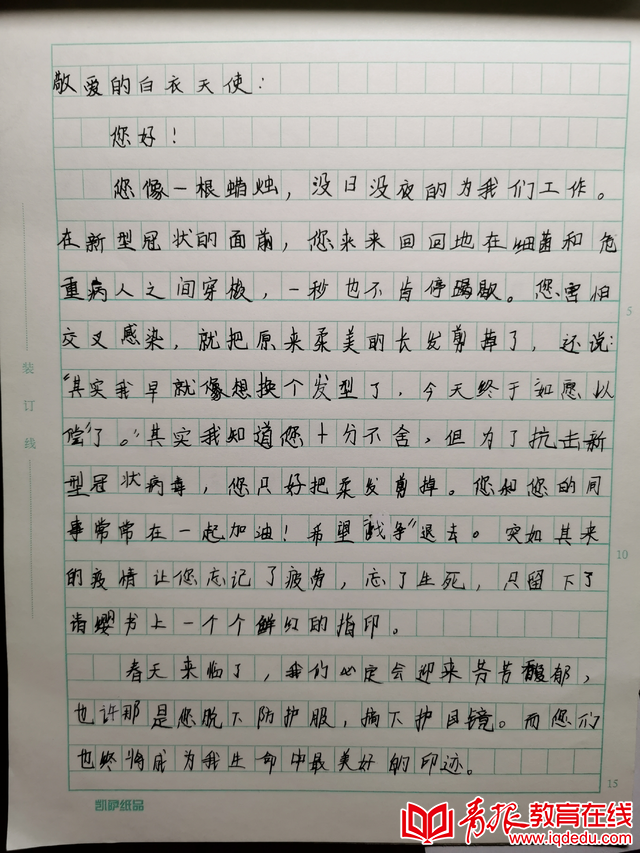 敬爱的白衣天使：
您好！
您像一根蜡烛，没日没夜的为我们工作。
在新型冠状的面前，您来来回回地在细菌和危
重病人之间穿梭，一秒也不肯停歇。您害怕
交叉感染，就把原来柔美的长发剪掉了，还说：
“其实我早就像想换个发型了，今天终于如愿以
偿了。”其实我知道您十分不舍，但为了抗击新
型冠状病毒，您只好把柔发剪掉。您和您的同
事常常在一起加油！希望“战争”退去。突如其来
的疫情让您忘记了疲劳，忘了生死，只留下了
请缨书上一个个鲜红的指印。
春天来临了，我们必定会迎来芳芳馥郁，
也许那是您脱下防护服，摘下护目镜。而您们
也终将成为我生命中最美好的印迹。
装订线
5
10
15
凯萨纸品
青报教育在线
www.iqdedu.com